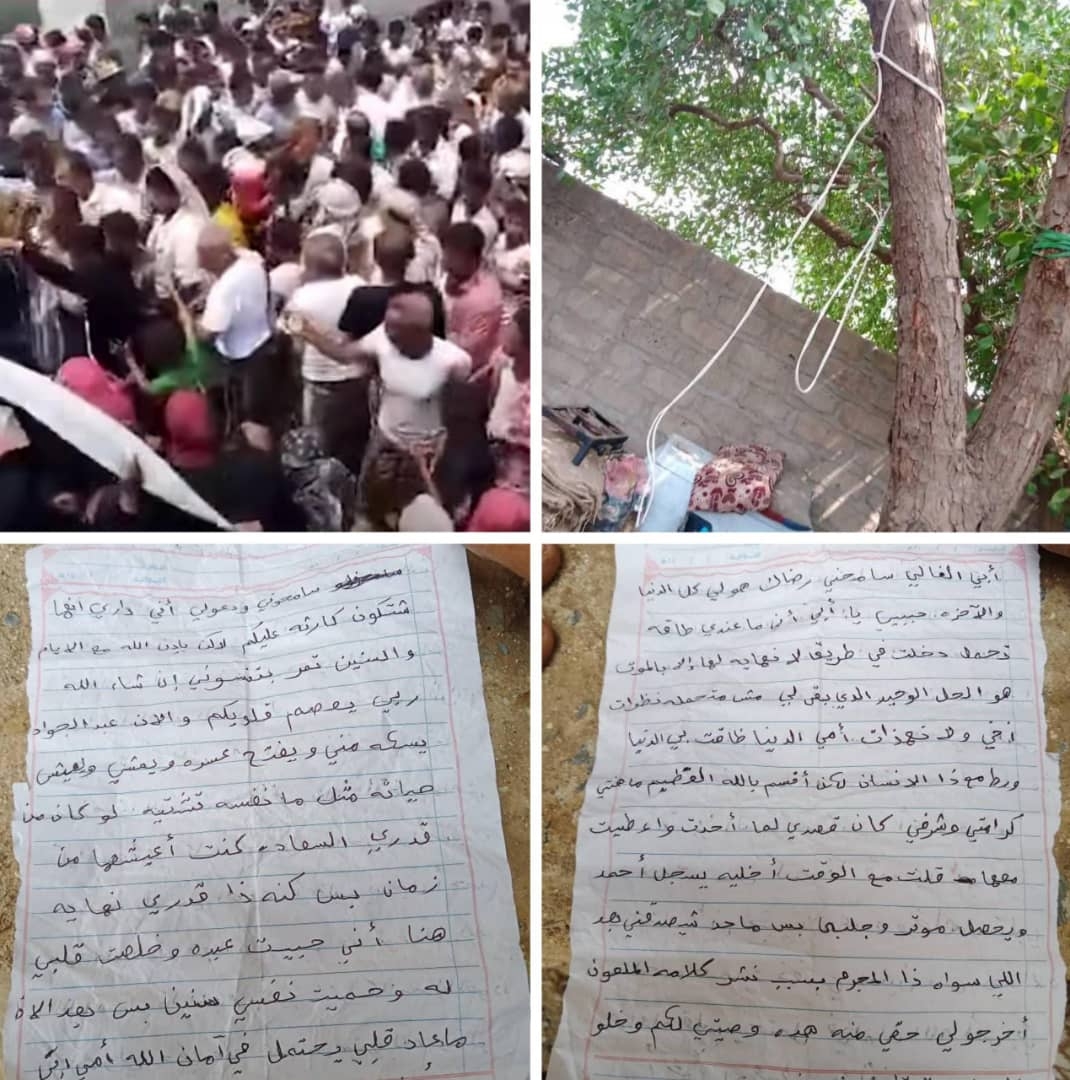 سامحوني ودعولي أني داري انها
شتكون كارثه عليكم لاكن باذن الله مع الايام
والسنين تمر بتنسوني إن شاء الله
ربي يعصم قلوبكم والان عبدالجواد
يسكه مني ويفتح عسره ويمشي ويعيش
حياته مثل ما نفسه تشتيه لو كان من
قدري السعاده كنت أعيشها من
زمان بس كنه ذا قدري نهايه
هنا أني حبيت عبده وخلصت قلبي
له وحميت نفسي سنين بس بعد الان
ماعاد قلبي يحتمل في أمان الله أمي
أبي الغالي سامحني رضاك هولي كل الدنيا
والآخره حبيبي يا أبي أني ما عندي طاقه
تحمل دخلت في طريق لا نهايه لها إلا بالموت
هو الحل الوحيد الذي بقى لي مش متحمله نظرات
أخي ولا نهذات أمي الدنيا ضاقت بي الدنيا
مع ذا الانسان لكن أقسم بالله العظيم ما خنتي
كرامتي وشرفي كان قصدي لما أخذت واعطيت
معها قلت مع الوقت أخليه يسجل أحمد
ويحصل موتر وجلبها بس ماحد شيصدقني بعد
اللي سواه ذا المجرم بسبب نشر كلامه الملعون
أخرجولي حقي منه هذه وصيتي لكم وخلو